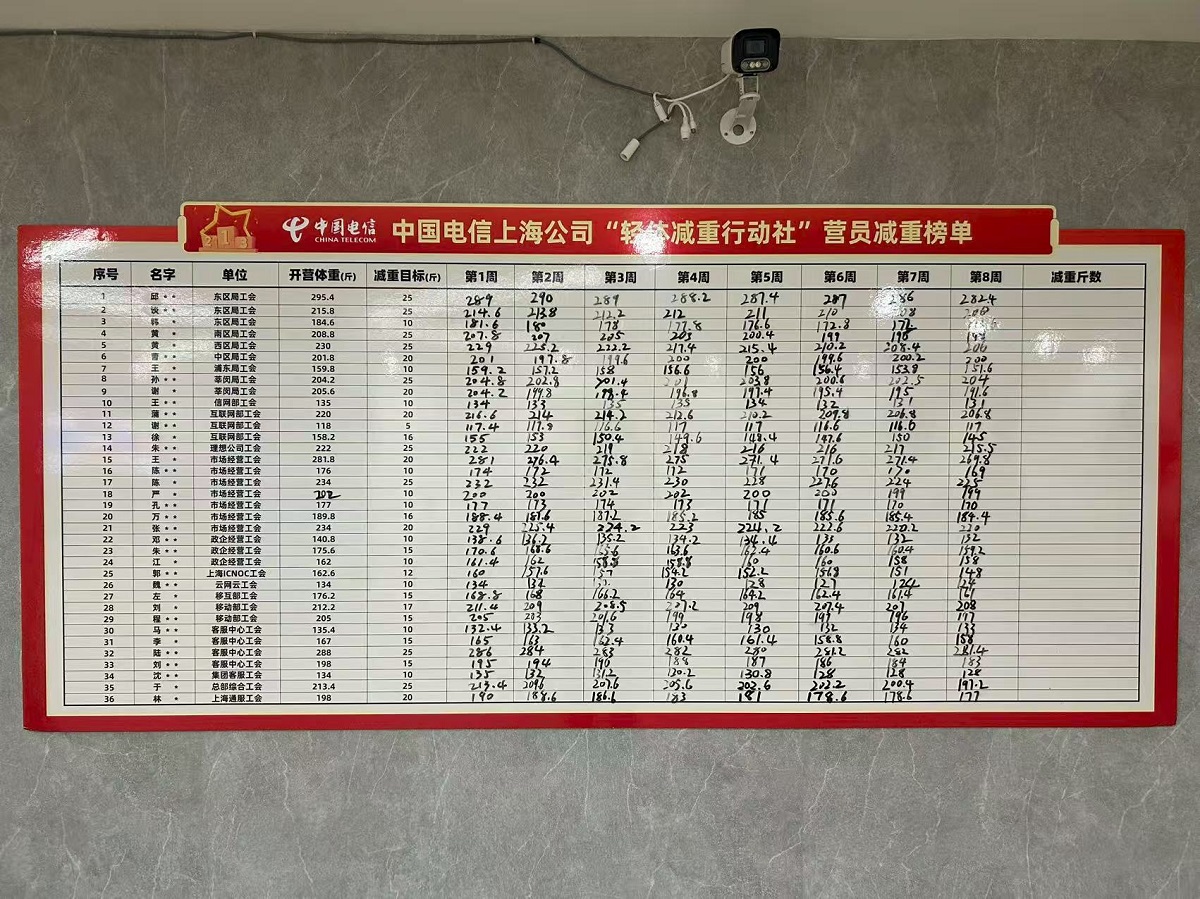 中国电信
CHINA TELECOM
中国电信上海公司“轻体减重行动社”营员减重榜单
序号 名字 单位 开营体重(斤) 减重目标(斤) 第1周 第2周 第3周 第4周 第5周 第6周 第7周 第8周 减重斤数
1 邱** 东区局工会 295.4 25 289 290 289 288.2 287.4 287 286 282.4
2 ** 东区局工会 215.8 25 214.6 213.8 212.2 212 211 210
3 韩 * 东区局工会 184.6 10 181.6 180 178 177.8 176.6 172.8 172
4 黄 * 南区局工会 208.8 25 207.8 207 205 203 200.4 199 196
5 黄 * 西区局工会 230 25 229 225.2 222.2 217.4 215.4 210.2 208.4 206
6 曹** 中区局工会 201.8 20 201 197.8 199.6 200 200 199.6 200.2 200
7 王 * 浦东局工会 159.8 10 159.2 157.2 158 156.6 156 156.4 153.8 151.6
8 孙** 莘闵局工会 204.2 25 204.8 202.8 201.4 201 203.8 200.6 202.5 204
9 谢 * 莘闵局工会 205.6 20 204.2 199.8 198.4 196.8 197.4 195.4 195 191.6
10 王** 信网部工会 135 10 134 133 135 135 134 132 131 131
11 蒲** 互联网部工会 220 20 216.6 214 214.2 212.6 210.2 209.8 206.8 206.8
12 谢** 互联网部工会 118 5 117.4 117.8 116.6 117 117 116.6 116.0 117
13 徐 * 互联网部工会 158.2 16 155 153 150.4 149.6 148.4 147.6 150 145
14 朱** 理想公司工会 222 25 222 220 219 218 216 216 217 215.5
15 王 * 市场经营工会 281.8 20 281 276.4 275.8 275 271.4 271.6 271.4 269.8
16 陈** 市场经营工会 176 10 174 172 172 172 171 170 170 169
17 陈 * 市场经营工会 234 25 232 232 231.4 230 228 227.6 224 225
18 严 * 市场经营工会 202 10 200 200 202 202 200 200 199 199
19 孔** 市场经营工会 177 10 177 173 174 173 171 171 170 170
20 万** 市场经营工会 189.8 16 188.4 187.6 187.2 185.2 185 185.6 185.4 184.4
21 张** 市场经营工会 234 20 229 225.4 224.2 223 224.2 222.6 220.2 220
22 邓** 政企经营工会 140.8 10 138.6 136.2 135.2 134.2 134.4 133 132 132
23 朱** 政企经营工会 175.6 15 170.6 168.6 163.6 162.4 160.6 160.4 159.2
24 江 * 政企经营工会 162 10 161.4 162 158.8 158.8 160 160 158 158
25 郭** 上海ICNOC工会 162.6 12 160 157.6 157 154.2 152.2 151 148
26 魏** 云网云工会 134 10 134 132 130 128 127 124 124
27 左 * 移互部工会 176.2 15 168.8 168 166.2 164 164.2 162.4 161.4 161
28 刘 * 移动部工会 212.2 17 211.4 209 208.5 207.2 209 207.4 207 208
29 程** 移动部工会 205 15 205 203 201.6 199 198 197 196 197
30 马** 客服中心工会 135.4 10 132.4 133.2 133 130 130 132 134 133
31 李 * 客服中心工会 167 15 165 163 162.4 160.4 161.4 158.8 160 158
32 陆** 客服中心工会 288 25 286 284 283 282 280 281.2 282 281.4
33 刘** 客服中心工会 198 15 195 194 190 188 187 186 184 183
34 沈** 集团客服工会 134 10 135 132 131.2 130.2 130.8 128 128 128
35 于 * 总部综合工会 213.4 25 213.4 209.6 207.6 205.6 203.6 202.2 200.4 197.2
36 林 * 上海通服工会 198 20 190 188.6 186.6 183 181 178.6 178.6 177